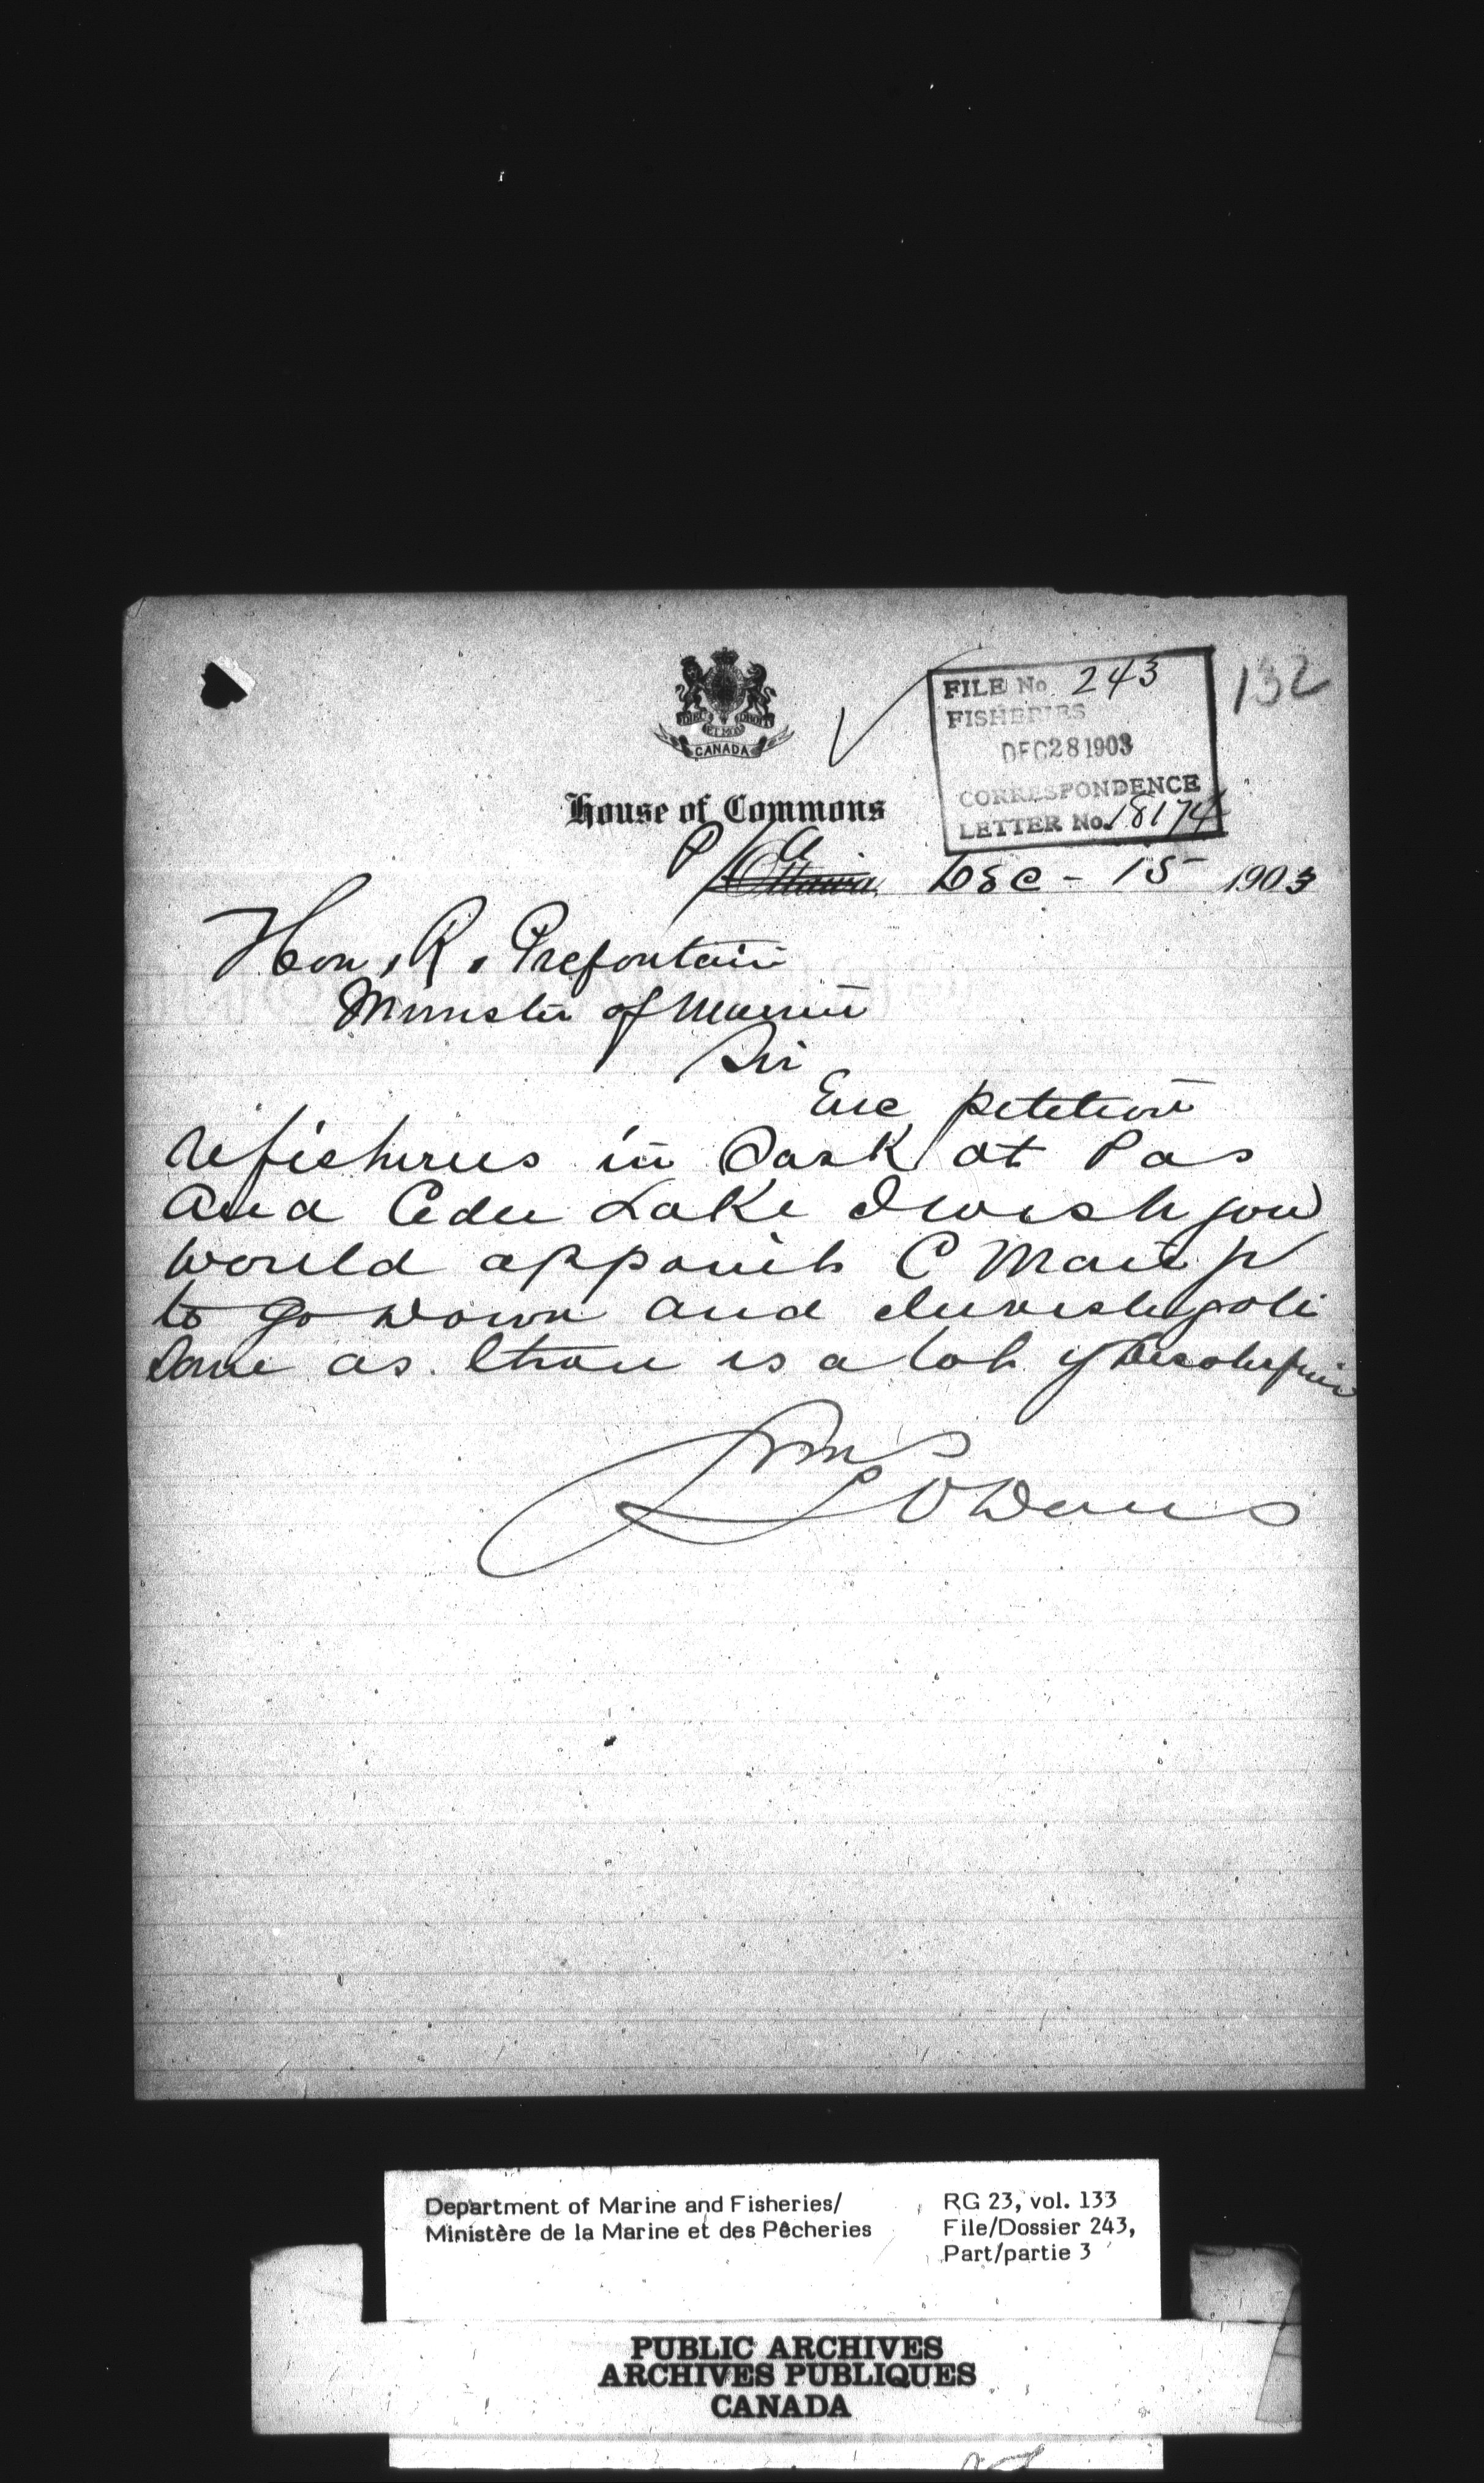 DIEU ET MON DROIT
CANADA
FILE No. 243
FISHERIES
DEC 28 1903
CORRESPONDENCE
LETTER No. 18174
132
House of Commons
P A
Ottawa, Dec - 15 1903
Hon, R. Prefontaine
Minister of Marine
Sir
Enc petition
re fisheries in Sask at Pas
and Ceder Lake I wish you
would appoint C Mair Jr
to go down and investigate
same as there is a lot of
Wm
Davis
Department of Marine and Fisheries/
Ministère de la Marine et des Pêcheries
RG 23, vol. 133
File/Dossier 243,
Part/partie 3
PUBLIC ARCHIVES
ARCHIVES PUBLIQUES
CANADA